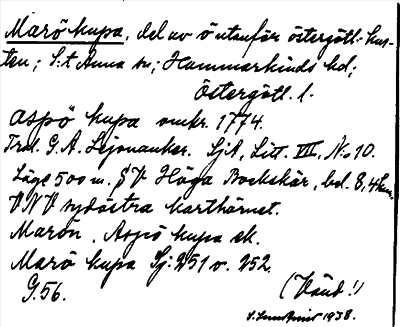 Marö kupa, del av ö utanför östergötl. kus-
ten; S:t Anna sn; Hammarkinds hd;
Östergötl. l.
Aspö kupa omkr. 1774.
Trol. G. A. Lejonanker. SjA, Litt. VIII. No 10.
Läge 500 m. SV Höga Bockskär, bd. 8,4 km
VNV sydöstra karthörnet.
Marön. Aspö kupa ek.
Marö kupa Sj: 251 o. 252.
G. 56.
(Vänd!)
1938.